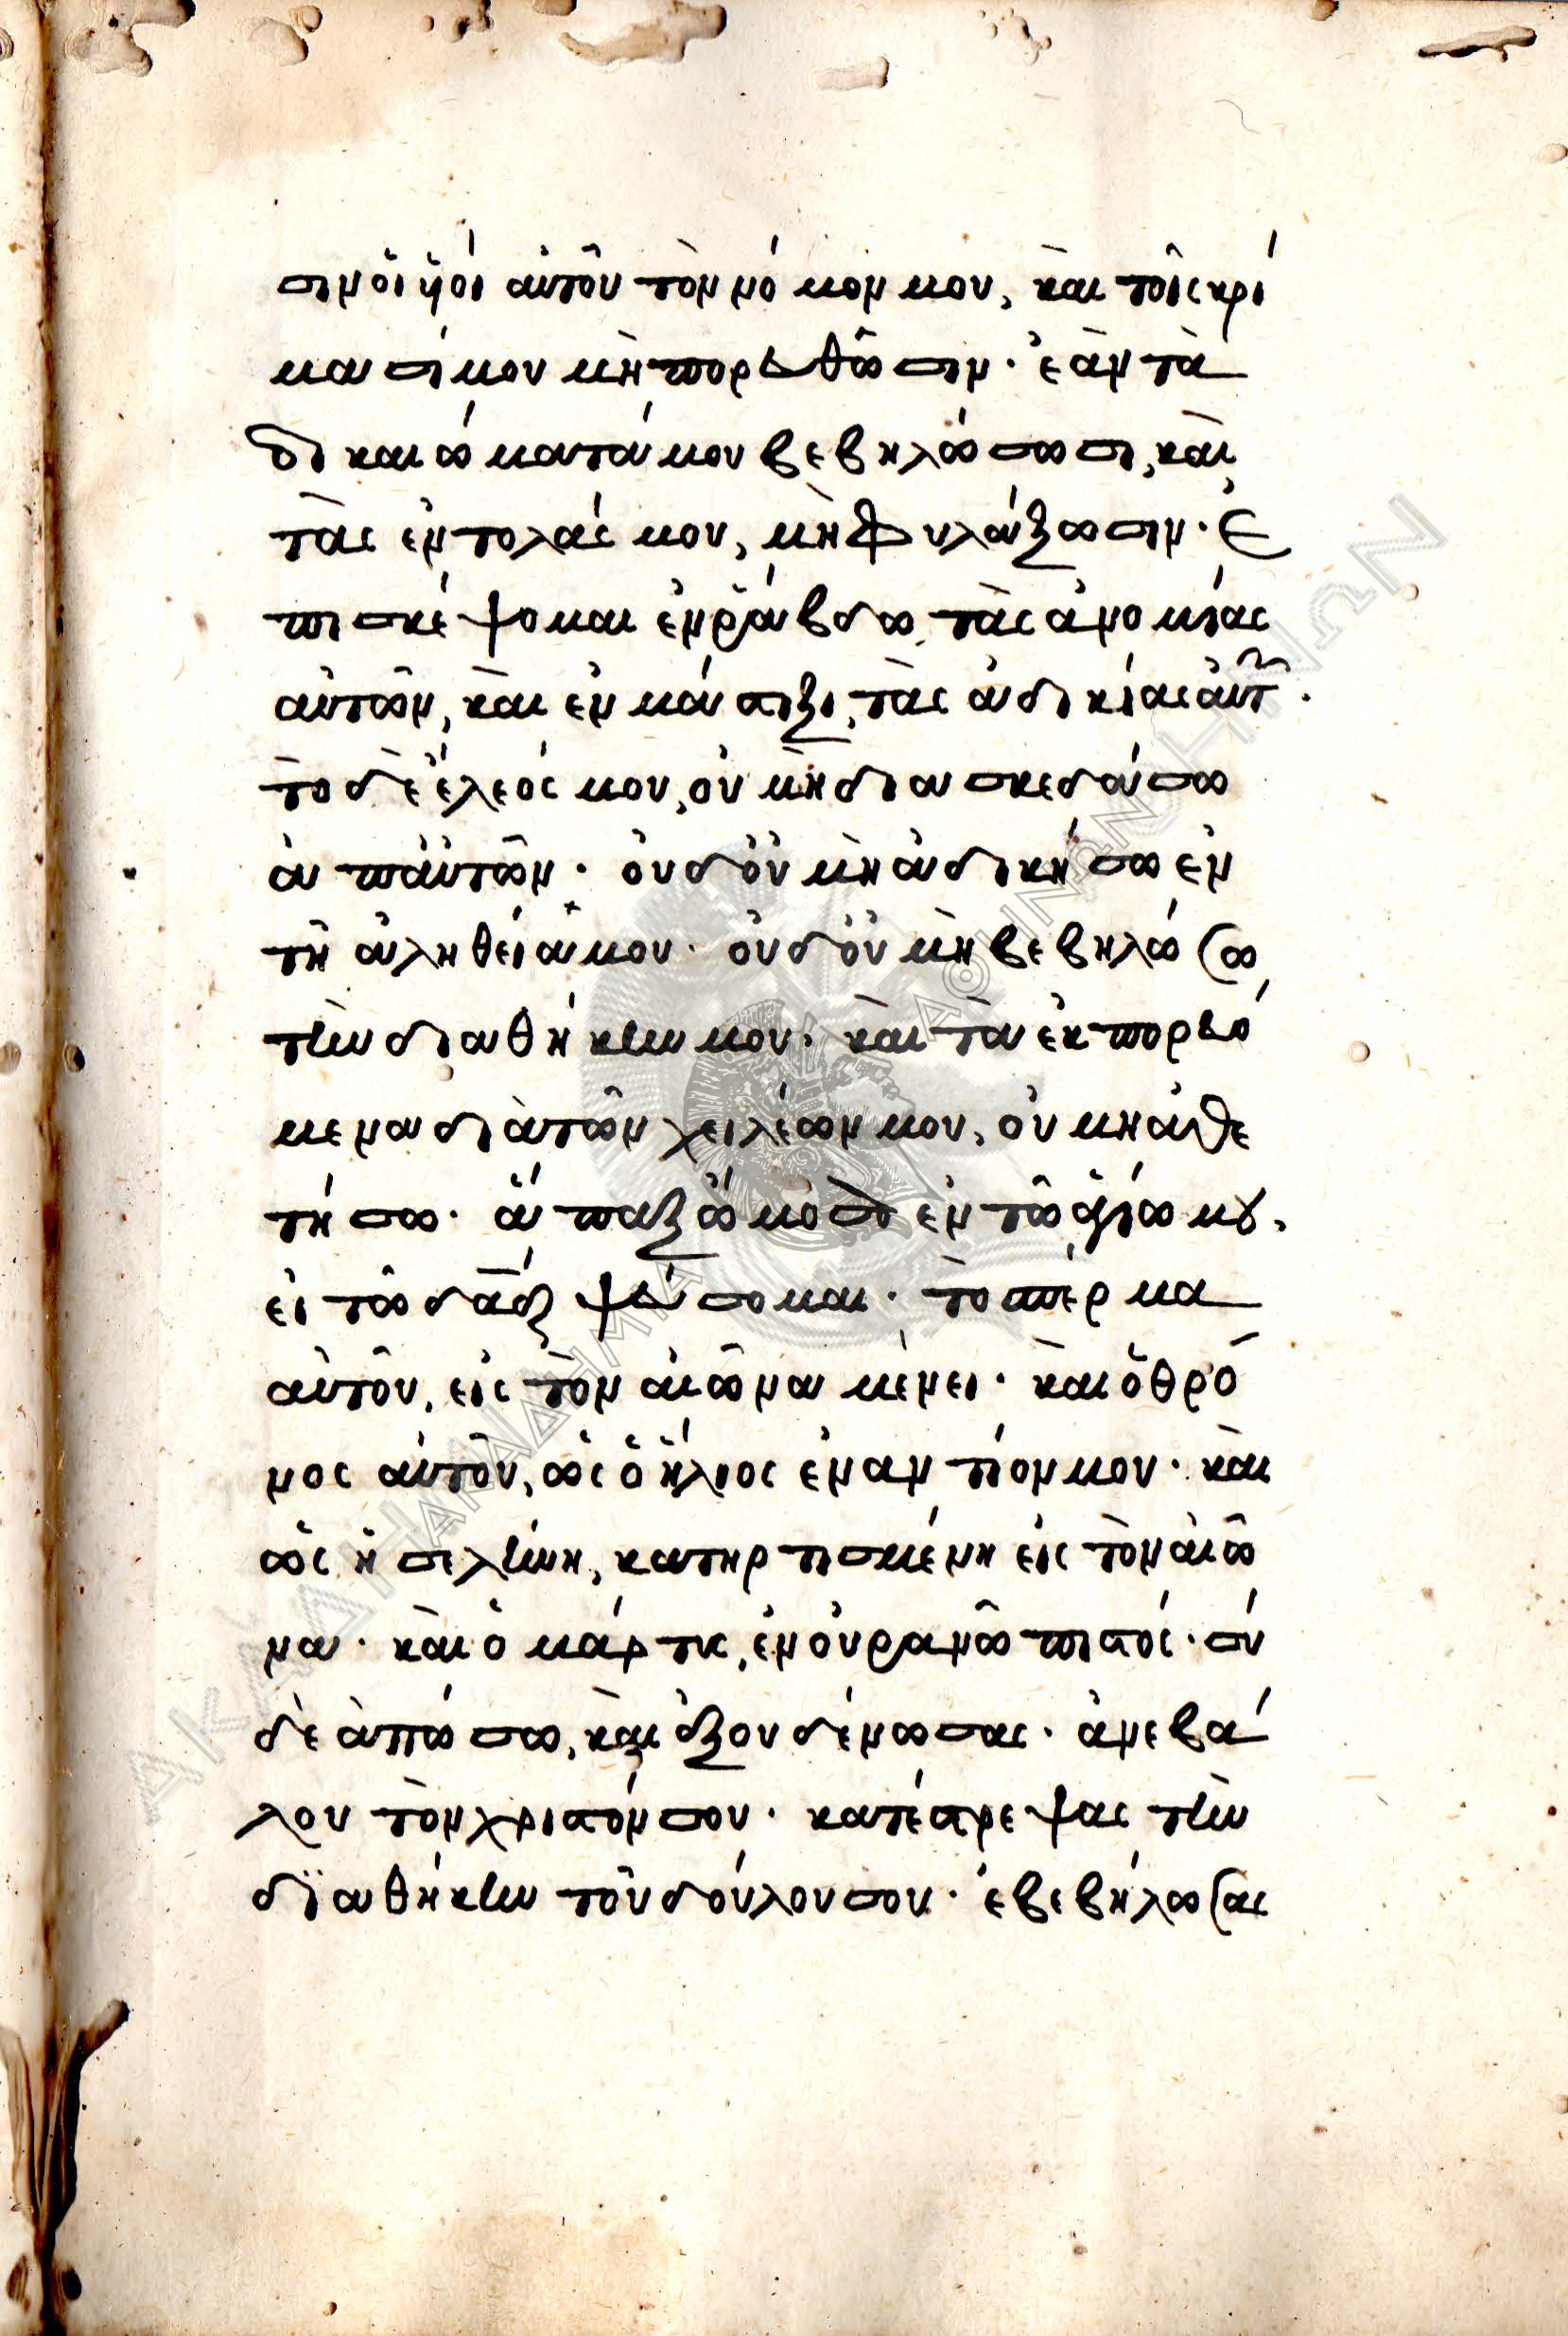 σιν ὁι ὑ̔οί ἀυτοῦ τὸν νό μον μου, κὰι τοῖς κρί
μα σί μου μὴ πορευθῶ σιν · ἐὰν τὰ
δι και ώ ματά μου βεβηλώ σω σι, κὰι
τὰς ἐν τολάς μου, μὴ φυλάξωσιν · Ἐ
πι σκέ ψομαι ἐν ῥά βδω, τὰς ἀνο μίας
ἀυτῶν, κὰι ἐν μά στιξι, τὰς ἀδι κίας ἀυτῶν .
τὸ δὲ ἔλεός μου, ὀυ μὴ δια σκεδάσω
ἀ π' ἀυτῶν · ὀυδ' ὀυ μὴ ἀδικήσω ἐν
τῆ ἀληθεία μου · ὀυδ' ὀυ μὴ βεβηλώσω
τὴν διαθήκην μου · κὰι τὰ ἐκ πορευό
μενα διὰ τῶν χειλέων μου, ὀυ μὴ ἀθε
τήσω · ἅ παξ ὤμοσα ἐν τῶ ἁγίω μου .
εἰ τῶ δᾱδ ψεύσομαι · τὸ σπέρ μα
ἀυτοῦ, εἰς τὸν ἀιῶνα μένει · κὰι ὁ θρό
νος ἀυτοῦ, ὡς ὁ ἥλιος ἐναν τίον μου · κὰι
ὡς ἡ σελήνη, κατηρ τισμένη εἰς τὸν ἀιῶ
να · κὰι ὁ μάρ τυς, ἐν ὀυρανῶ πιστός · σὺ
δὲ ἀπώσω, κὰι ἐξουδένωσας · ἀνεβά
λου τὸν χριστόν σου · κατέστρεψας τὴν
δϊαθήκην τοῦ δούλου σου · ἐβεβήλωσας
ΑΚΑΔΗΜΙΑ ΑΘΗΝΩΝ